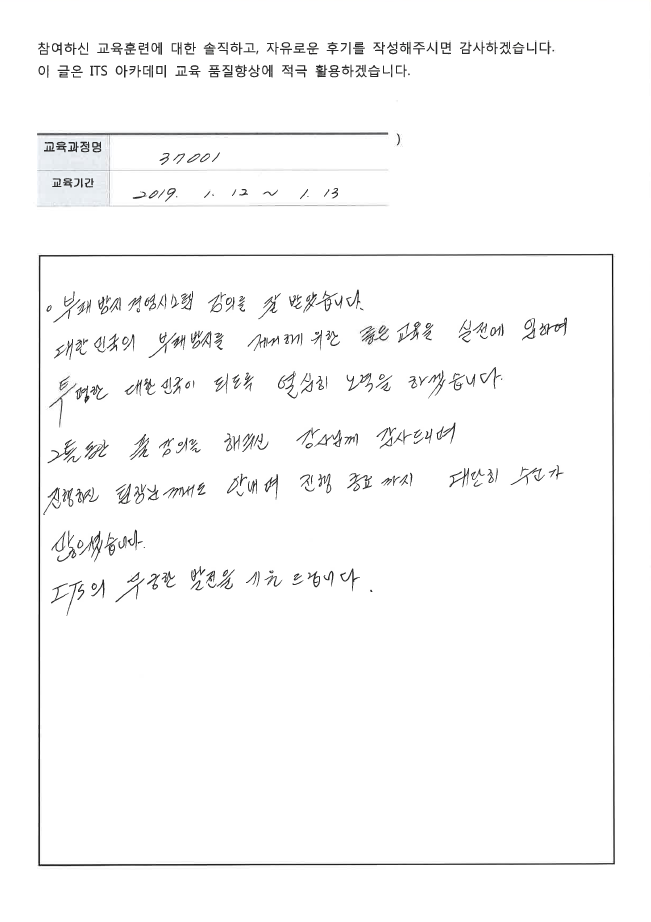 참여하신 교육훈련에 대한 솔직하고, 자유로운 후기를 작성해주시면 감사하겠습니다.
이 글은 ITS 아카데미 교육 품질향상에 적극 활용하겠습니다.
)
교육과정명 37001
교육기간 2019. 1. 12 ~ 1. 13
o 부패방지경영시스템 강의를 잘 받았습니다.
대한민국의 부패방지를 위한 좋은 교육을 실천에 임하여
투명한 대한민국이 되도록 열심히 노력을 하겠습니다.
그틀동안 강의를 해주신 강사님께 감사드리며
진행하신 팀장님께서도 안내며 진행 종료까지 대단히 수고가
많으셨습니다.
ITS의 무궁한 발전을 기원드립니다.